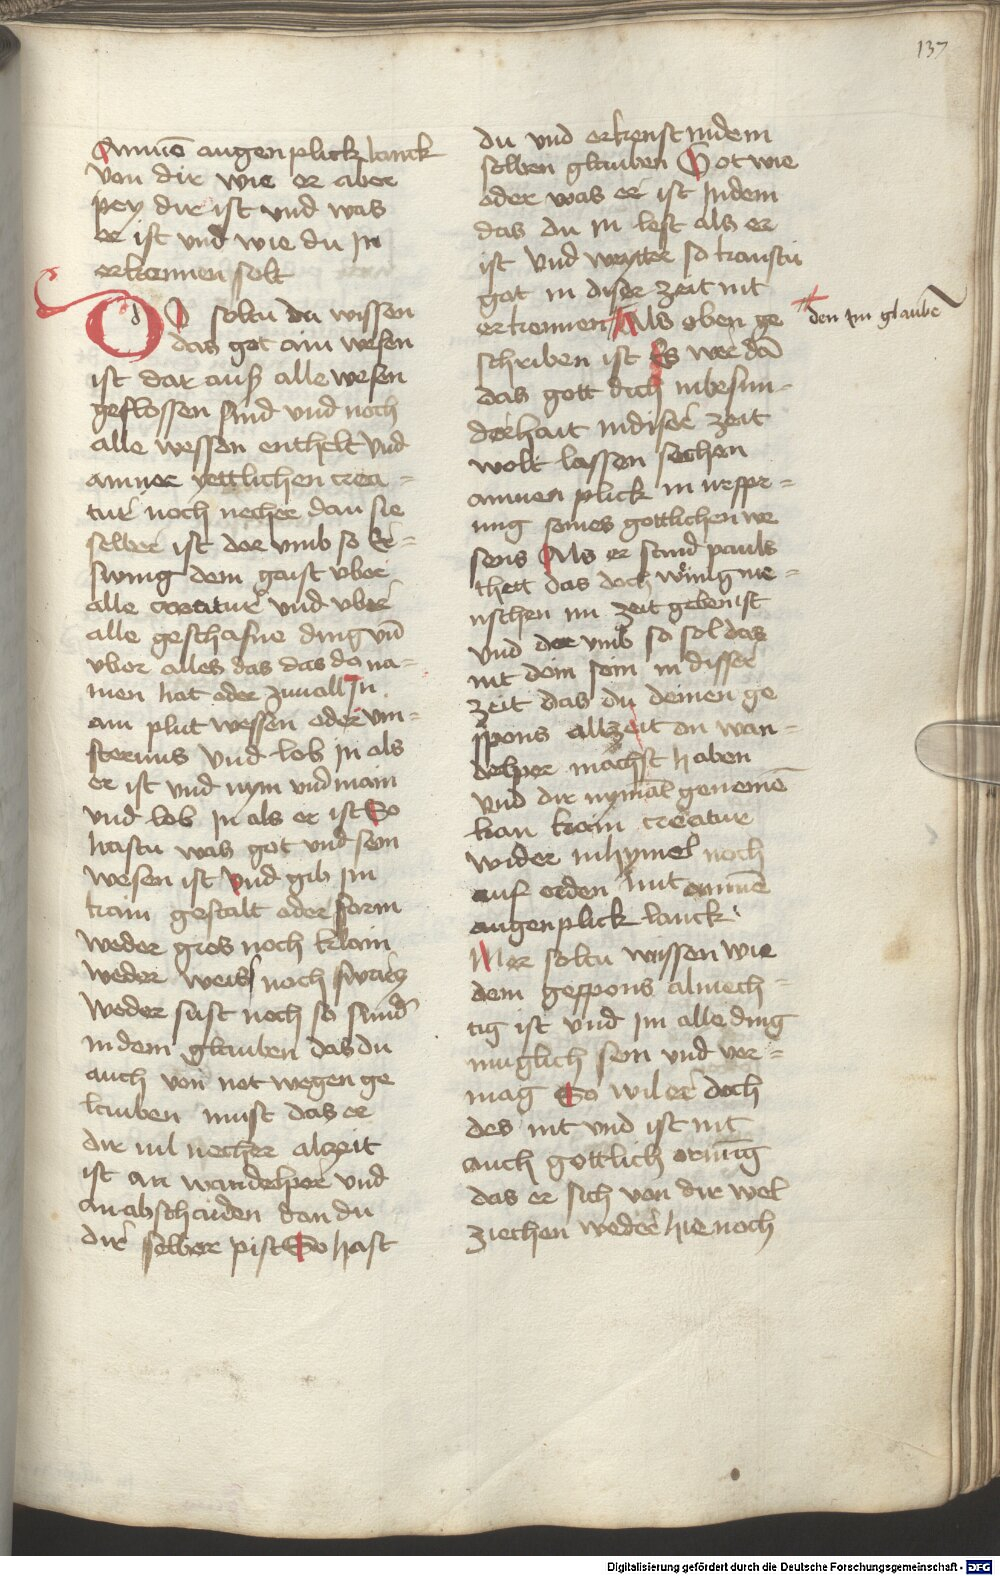 137
Ainnē augenplick lanck
von dir wie er aber
pey dir ist und was
er ist und wie du In
erkennen solt
DO soltu du wissen
das got ain wesen
ist dar auß alle wesen
geflossen sind und noch
alle wessen enthelt und
ainner yettlichen crea-
tur noch necher dan sie
selber ist dar umb so Er-
swing dein gaist uber
alle creatur und uber
alle geschafne ding un̄
uber alles das das da na-
men hat oder zuuall In
ain plut wessen oder vin-
sternus und lob In als
er ist und nym und main
und lob In als er ist So
hastu was got und sein
wesen ist und gib Im
kain gestalt oder form
weder gros noch klain
weder weiss noch swartz
weder sust noch so sund
In dem glauben das du
auch von not wegen ge
lauben must das er
dir vil necher alzeit
ist an wandelper und
an abschaiden dan du
dir selber pist So hast
du und erkenst In dem
selben glauben Got wie
oder was er ist In dem
das du In lest als er
ist und weytter so kanstu
got in diser zeit nit
erkennen Als oben ge
schriben ist Es wer dā
das gott dich inbesun-
derhait in diser zeit
wolt lassen sechen
ainnen plick in ursspr-
ung seines gottlichen we
sens Als er sand pauls
thett das doch wenig me-
nschen im zeit geben ist
und dar umb so sol das
nit dein sein in disser
zeit das du deinen ge
spons allzeit on wan-
delper machst haben
und dir nymāl genemē
kan kain creatur
wider in hymel noch
auf erden nit ainnē
augenplick lanck
Mer soltu wyssen wie
dem gespons almech-
tig ist und Im alle ding
muglich sen und ver-
mag So wil er doch
des nit und ist nit
auch gottlich ornung
das er sich von dir wel
ziechen weder hie noch
den im glaube
Digitalisierung gefördert durch die Deutsche Forschungsgemeinschaft - DFG